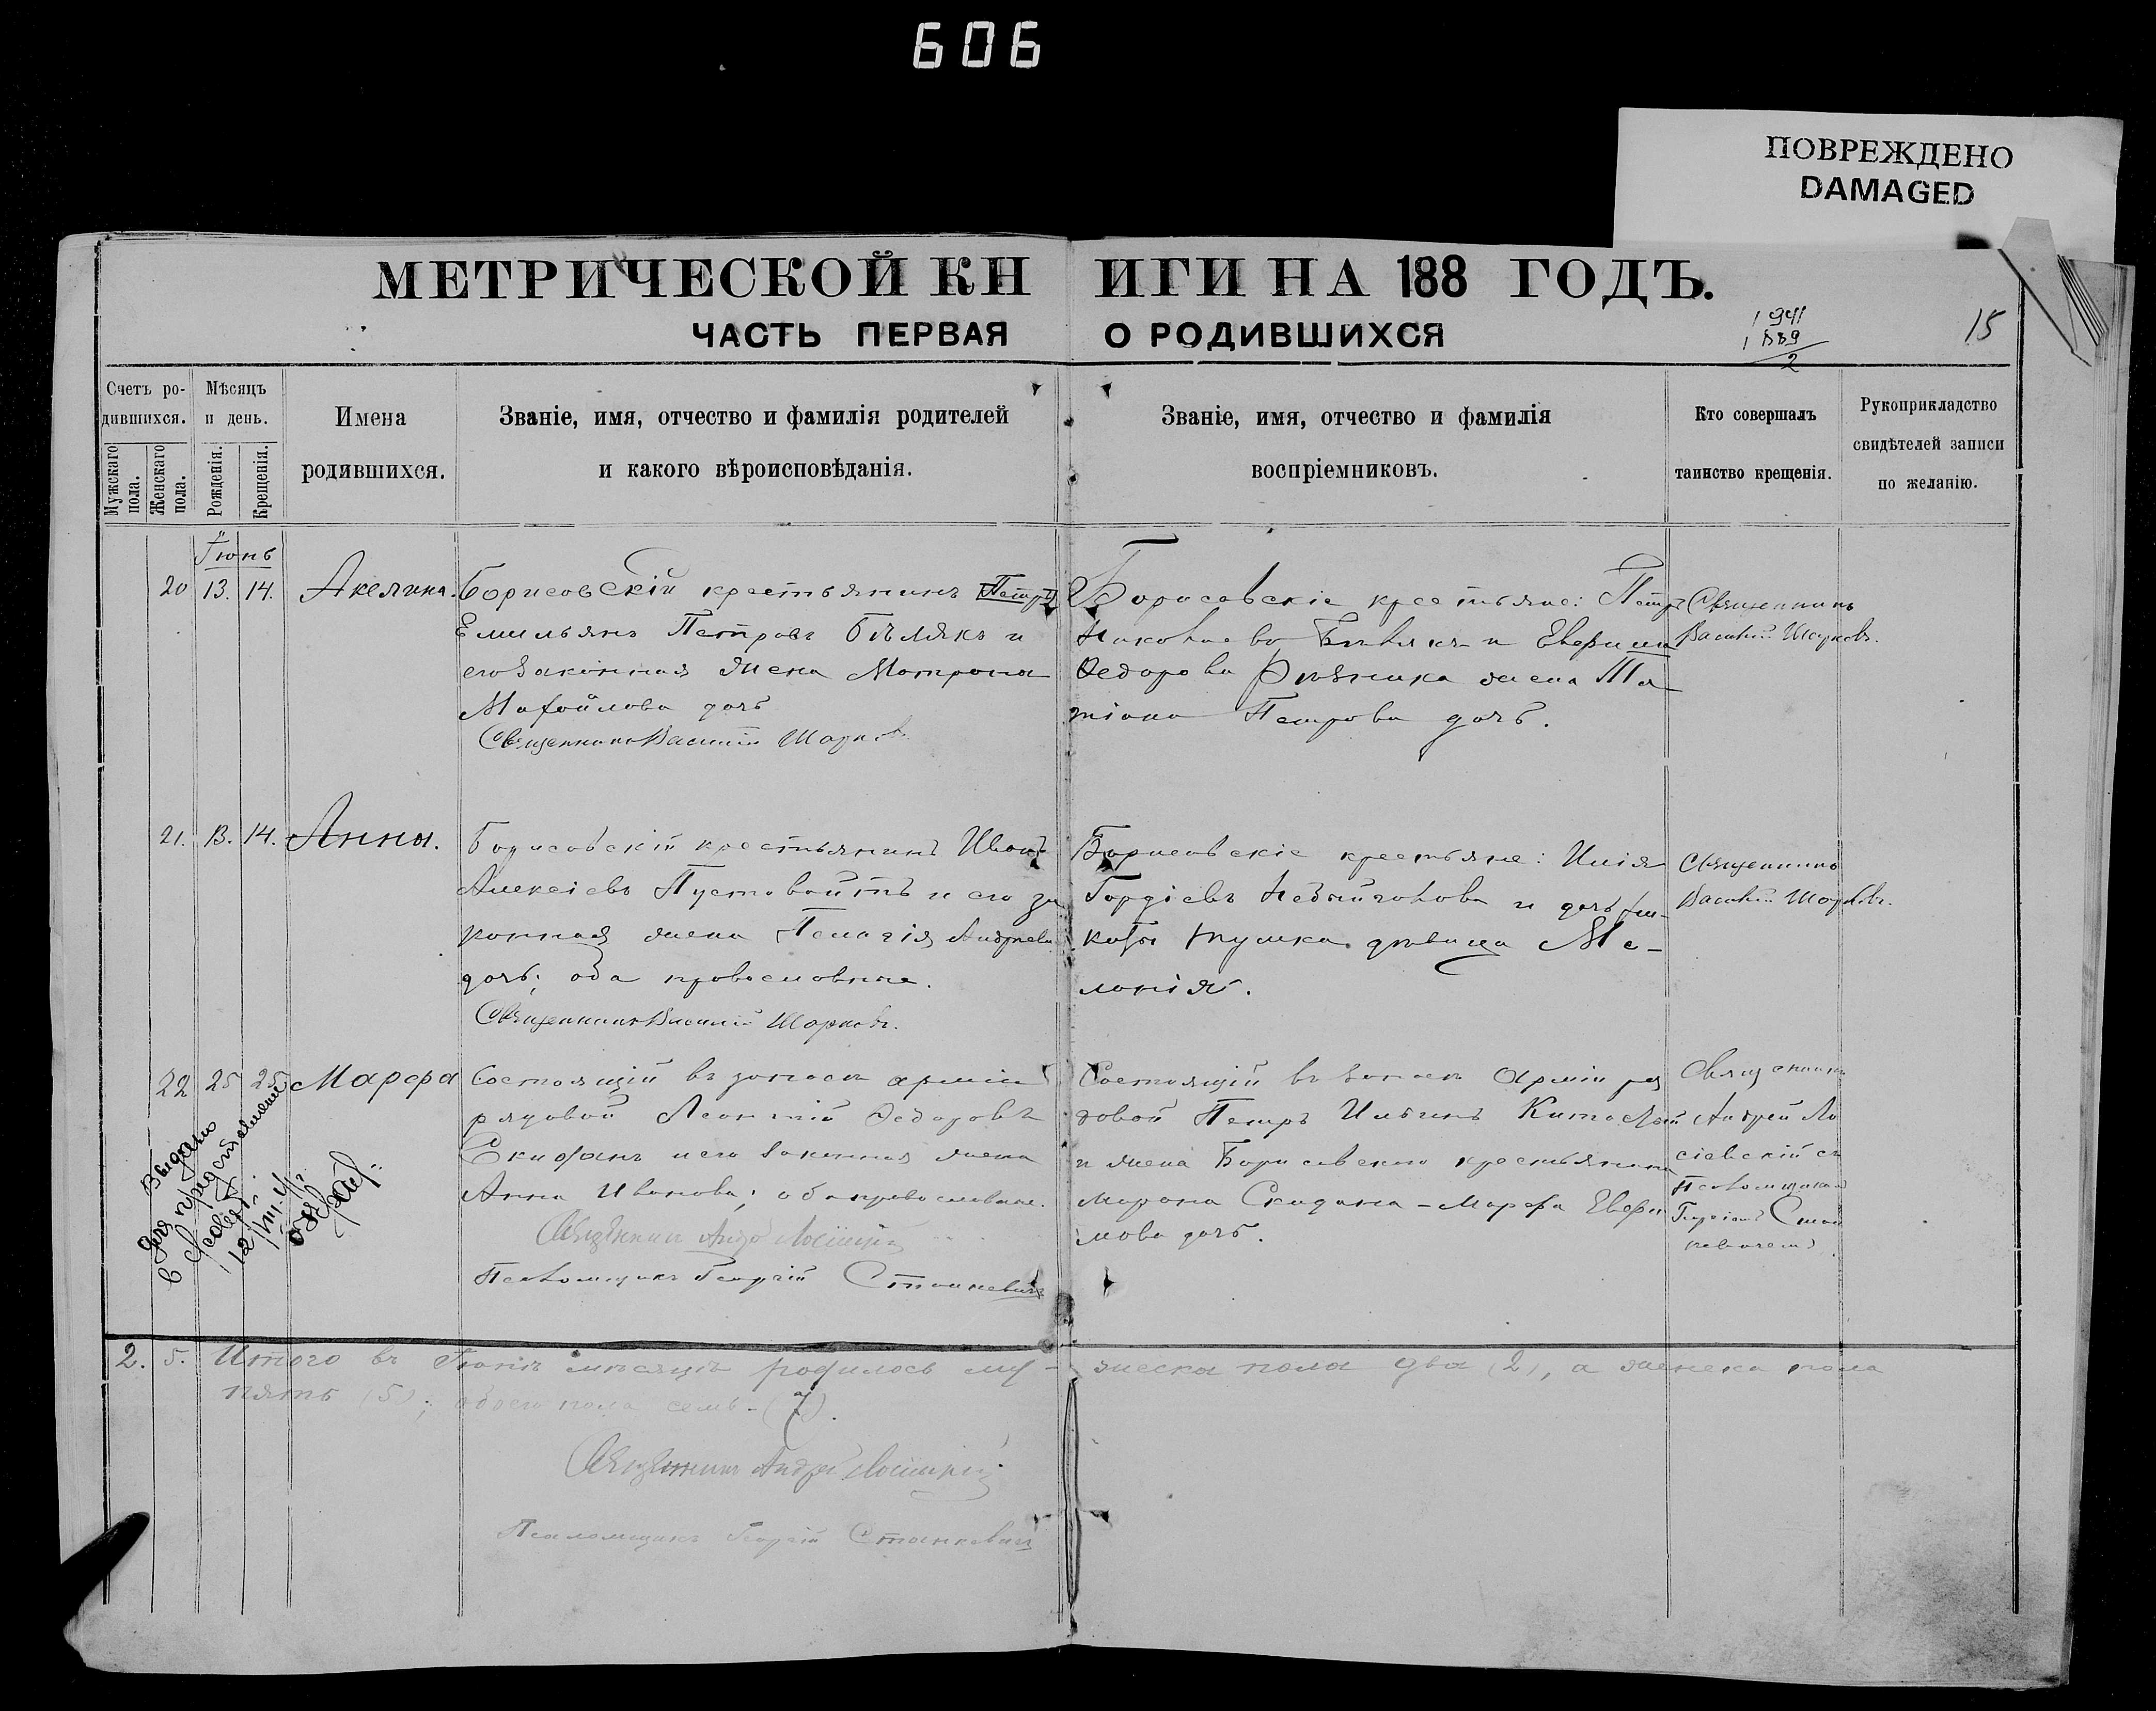 606
ПОВРЕЖДЕНО
DAMAGED
МЕТРИЧЕСКОЙ КНИГИ НА 188 ГОДЪ.
ЧАСТЬ ПЕРВАЯ О РОДИВШИХСЯ
1941
1889
2
15
Счетъ родившихся.
Мужскаго пола.
Женскаго пола.
Мѣсяцъ и день.
Рожденія.
Крещенія.
Имена родившихся.
Званіе, имя, отчество и фамилія родителей
и какого вѣроисповѣданія.
Званіе, имя, отчество и фамилія
воспріемниковъ.
Кто совершалъ
таинство крещенія.
Рукоприкладство
свидѣтелей записи
по желанію.
Іюнь
20 13. 14. Акелина.
Борисовскій крестьянинъ Петръ
Емильянъ Петровъ Бѣлякъ и
его законная жена Матрона
Михайлова дочь
Священникъ Василій
Борисовскіе крестьяне: Петръ
и
Федорова жена Та
тіана Петрова дочь.
Священникъ
Василій
21. 13. 14. Анна.
Борисовскій крестьянинъ Иванъ
Алексіевъ Пустовойтъ и его за
конная жена Пелагія Андреева
дочь; оба православные.
Священникъ Василій
Борисовскіе крестьяне: Илія
Гордіевъ и дочь
дѣвица Ме-
ланія.
Священникъ
Василій
22 25 25 Марфа
Состоящій въ запасѣ арміи
рядовой Леонтій Федоровъ
и его законная жена
Анна Иванова; оба православные.
Священникъ Андрей
Псаломщикъ Георгій Станкевичъ
Состоящій въ запасѣ арміи ря
довой Петръ Ильинъ
и жена Борисовскаго крестьянина
Мирона Скидана - Марфа Евфи
мова дочь.
Священникъ
Андрей Ло
сіевскій съ
Псаломщикомъ
Георгіемъ Стан
кевичемъ.
Выдано
для представления
в
12/III.41г.
2. 5. Итого въ Іюнѣ мѣсяцѣ родилось му-жеска пола два (2), а женска пола
пять (5); обоего пола семь-(7).
Священникъ Андрей
Псаломщикъ Георгій Станкевичъ